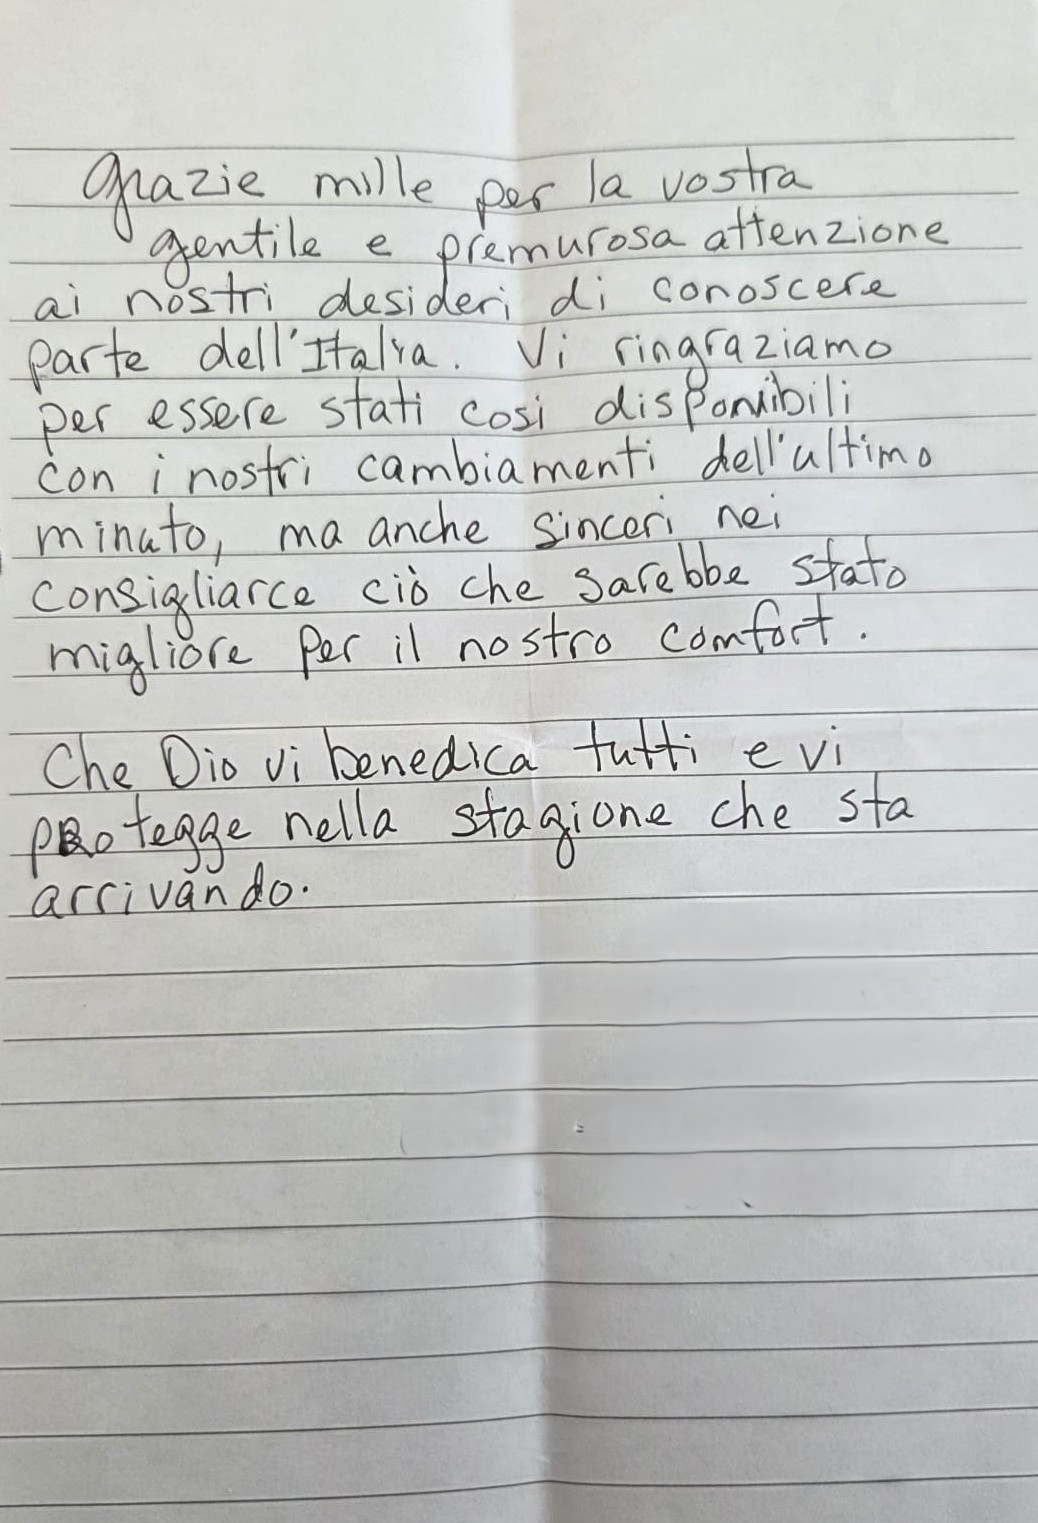 Grazie mille per la vostra
gentile e premurosa attenzione
ai nostri desideri di conoscere
parte dell'Italia. Vi ringraziamo
per essere stati cosi disponibili
con i nostri cambiamenti dell'ultimo
minuto, ma anche sinceri nei
consigliarce ciò che sarebbe stato
migliore per il nostro comfort.
Che Dio vi benedica tutti e vi
protegge nella stagione che sta
arrivando.